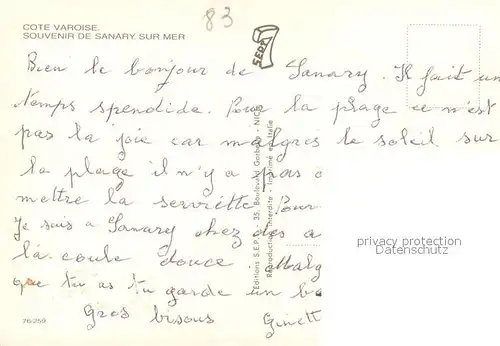 COTE VAROISE.
SOUVENIR DE SANARY SUR MER
83
SEPT
Bien le bonjour de Sanary. Il fait un
temps spendide. Pour la plage ce n'est
pas la joie car malgris le soleil sur
la plage il n'y a pas
mettre la serviette. Pour
Je suis a Sanary chez des a
la coule douce. Malg
que tu as tu garde un b
Gros bisous Ginett
Editions S.E.P.T. - 35, Boulevard Gorbella - NICE
Reproduction Interdite - Imprimé en Italie
privacy protection
Datenschutz
76/259